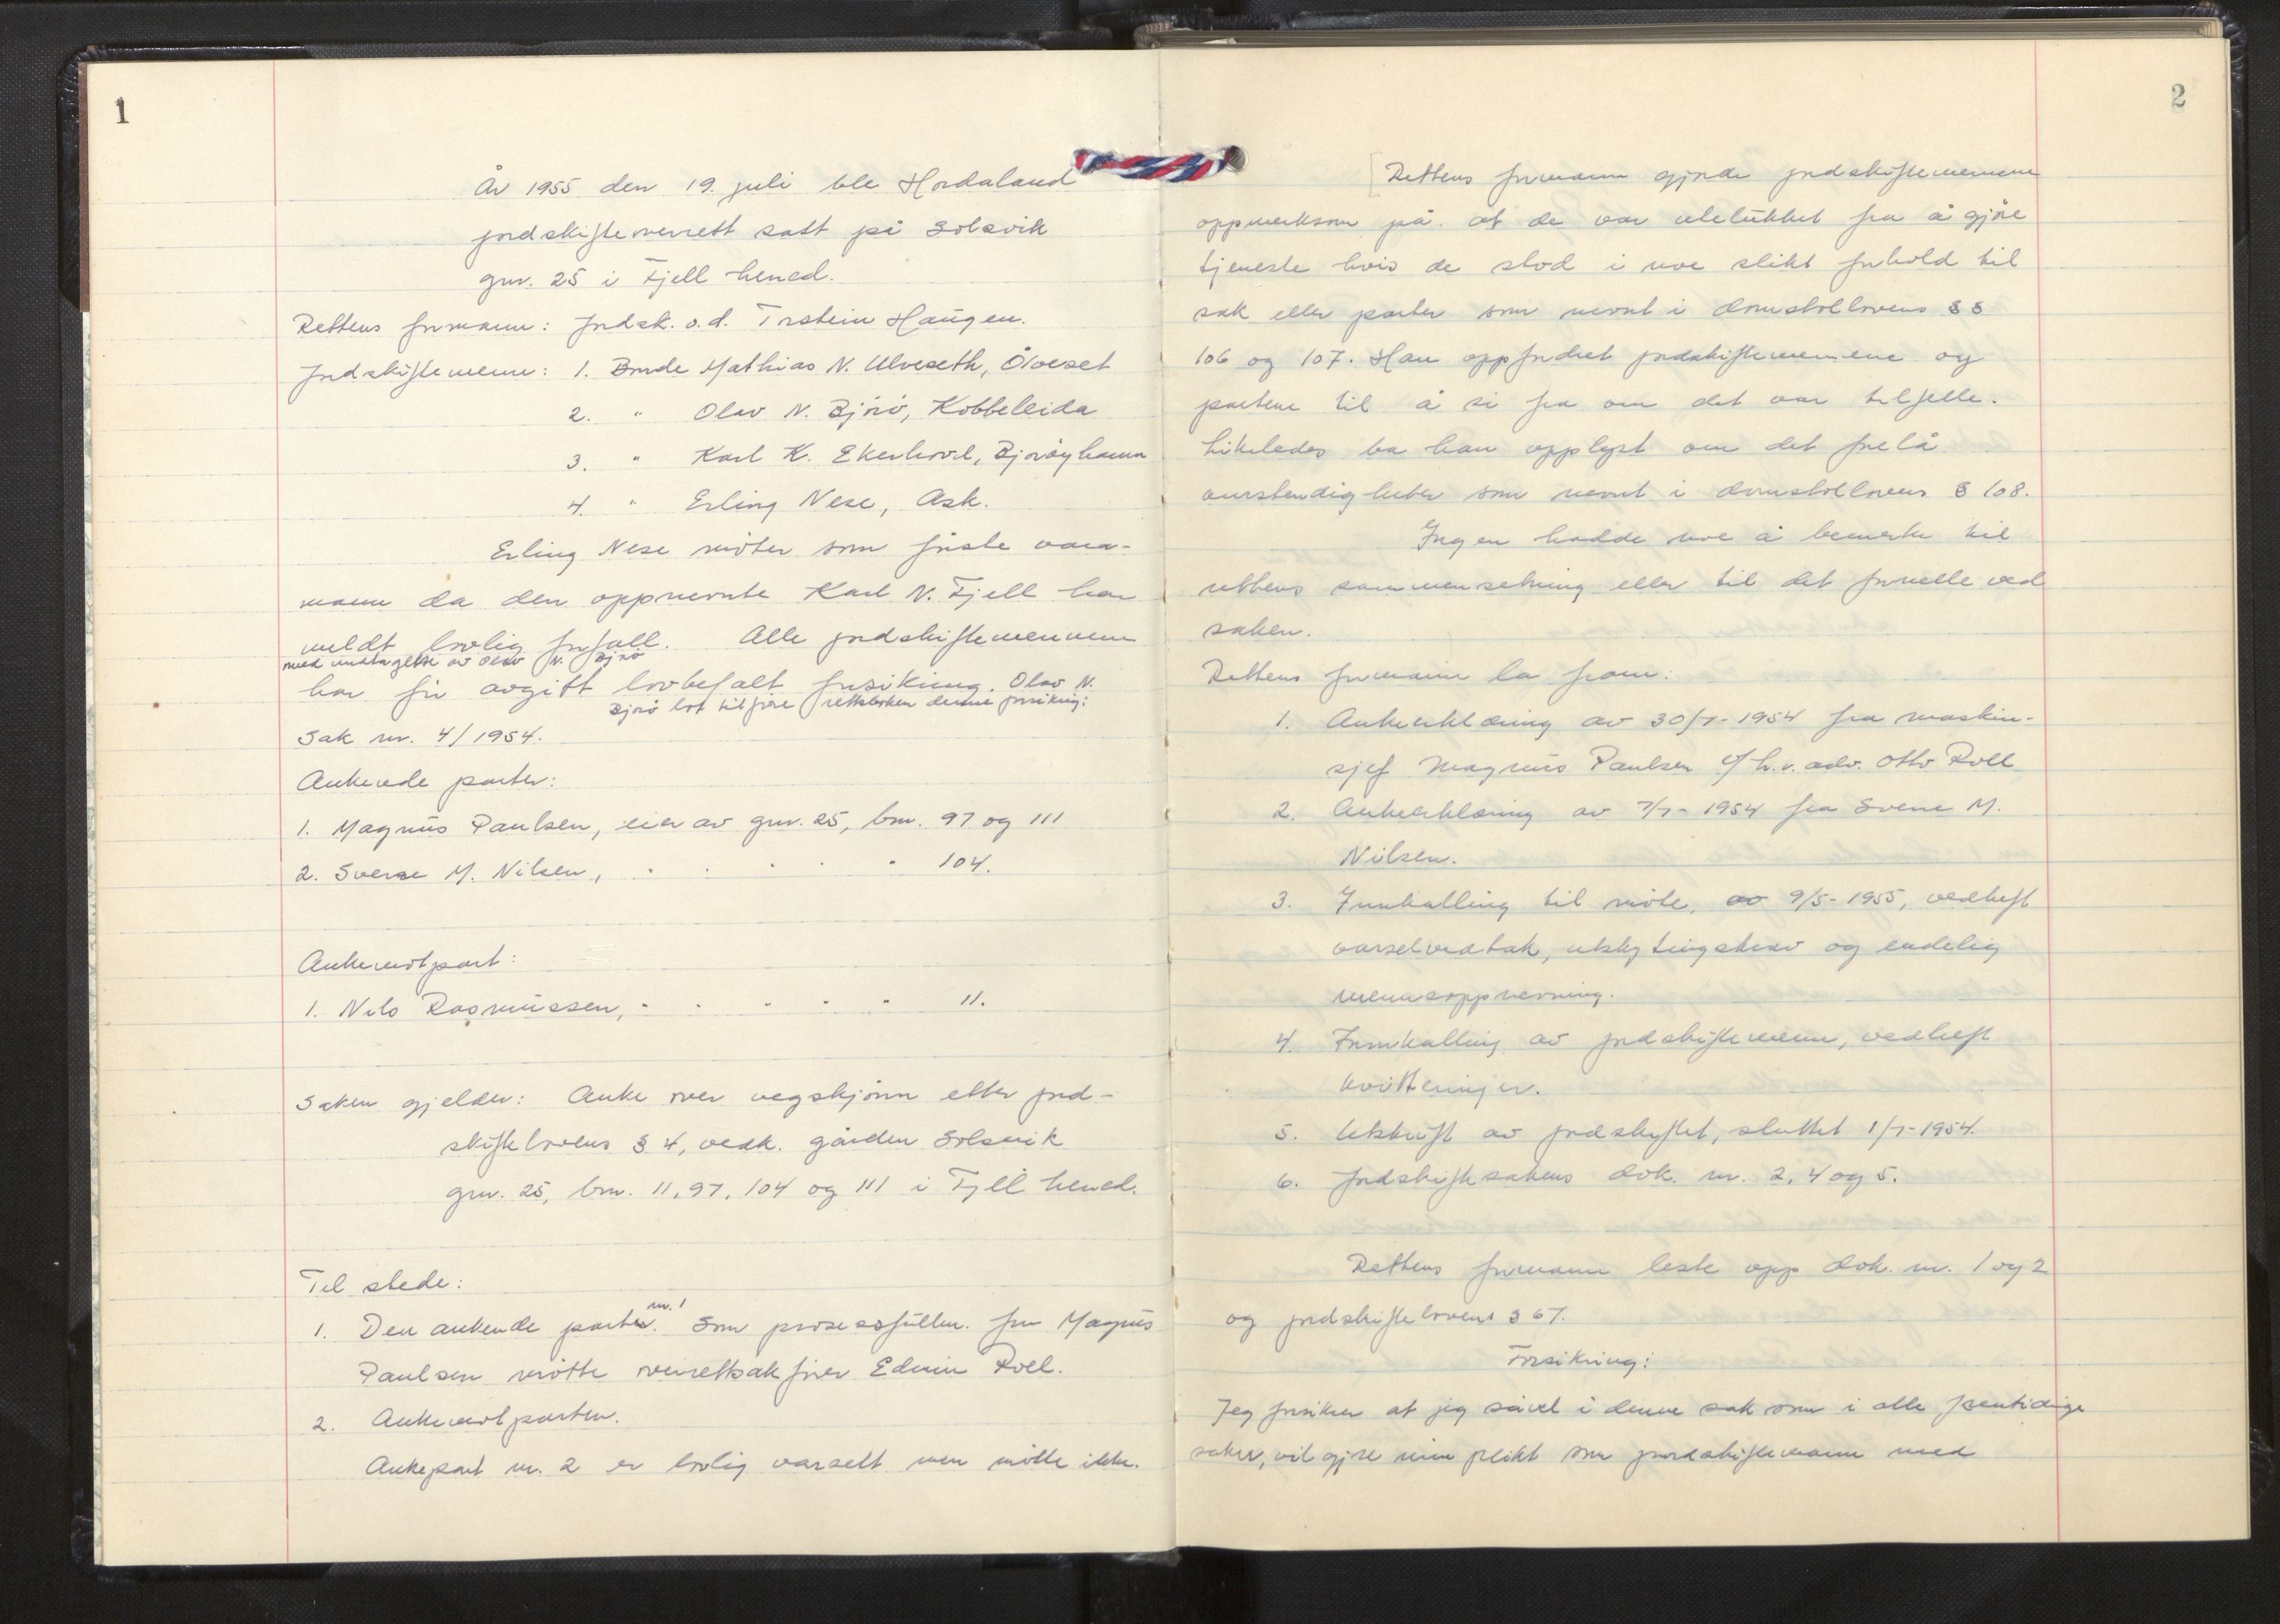 1
År 1955 den 19. juli ble Hordaland
jordskifteoverrett satt på Solsvik
gnr. 25 i Fjell herred.
Rettens formann: Jordsk. o.d. Torstein Haugen.
Jordskiftemenn: 1. Bonde Mathias N. Ulveseth, Ölveset
2. " Olav N. Bjorö, Kobbeleida
3. " Karl K. Ekerhovd, Bjoröyhamn
4. " Erling Nese, Ask.
Erling Nese möter som förste vara-
mann da den oppnevnte Karl N. Fjell har
meldt lovlig forfall. Alle jordskiftemennene
med undtagelse av Olav N. Bjorö
har för avgitt lovbefalt forsikring. Olav N.
Bjorö lot tilföre rettsboken denne forsikring:
Sak nr. 4/1954.
Ankende parter:
1. Magnus Paulsen, eier av gnr. 25, bnr. 97 og 111
2. Sverre M. Nilsen, " " " " 104.
Ankemotpart:
1. Nils Rasmussen, " " " " " 11.
Saken gjelder: Anke over vegskjönn etter jord-
skiftelovens § 4, vedk. gården Solsvik
gnr. 25, bnr. 11, 97, 104 og 111 i Fjell herred.
Til stede:
1. Den ankende parten nr. 1. Som prosessfullm. for Magnus
Paulsen mötte overrettsakförer Edvin Roll.
2. Ankemotparten.
Ankepart nr. 2 er lovlig varselt men mötte ikke.
2
[Rettens formann gjorde jordskiftemennene
oppmerksom på at de var utelukket fra å gjöre
tjeneste hvis de stod i noe slikt forhold til
sak eller parter som nevnt i domstollovens §§
106 og 107. Han oppfordret jordskiftemennene og
partene til å si fra om det var tilfelle.
Likeledes ba han opplyst om det forelå
omstendigheter som nevnt i domstollovens § 108.
Ingen hadde noe å bemerke til
rettens sammensetning eller til det formelle ved
saken.
Rettens formann la fram:
1. Ankeerklæring av 30/7-1954 fra maskin-
sjef Magnus Paulsen v/h.r. adv. Otto Roll
2. Ankeerklæring av 7/7-1954 fra Sverre M.
Nilsen.
3. Innkalling til möte, av 9/5-1955, vedheft
varselvedtak, utskytingskrav og endelig
mennsoppnevning.
4. Innkalling av jordskiftemenn, vedheft
kvitteringer.
5. Utskrift av jordskiftet, sluttet 1/7-1954.
6. Jordskiftesakens dok. nr. 2, 4 og 5.
Rettens formann leste opp dok. nr. 1 og 2
og jordskiftelovens § 67.
Forsikring:
Jeg forsikrer at jeg såvel i denne sak som i alle framtidige
saker, vil gjöre min plikt som jordskiftemann med